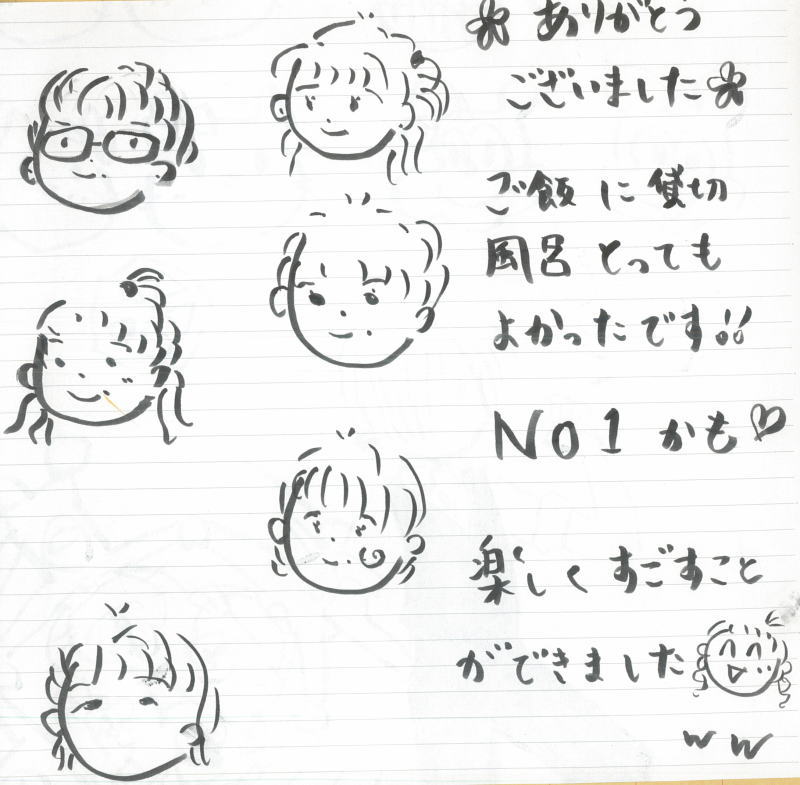 ありがとう
ございました
ご飯に貸切
風呂とっても
よかったです!!
NO1かも♡
楽しくすごすこと
ができました
ww